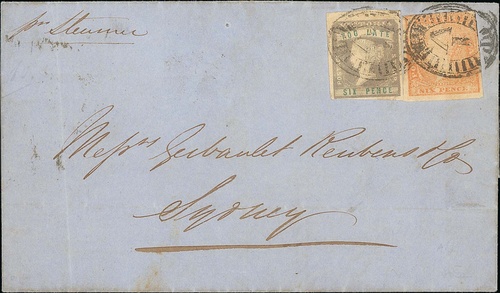 per Steamer
TOO LATE
SIX PENCE
SIX PENCE
Messrs Gibault Reubens & Co
Sydney